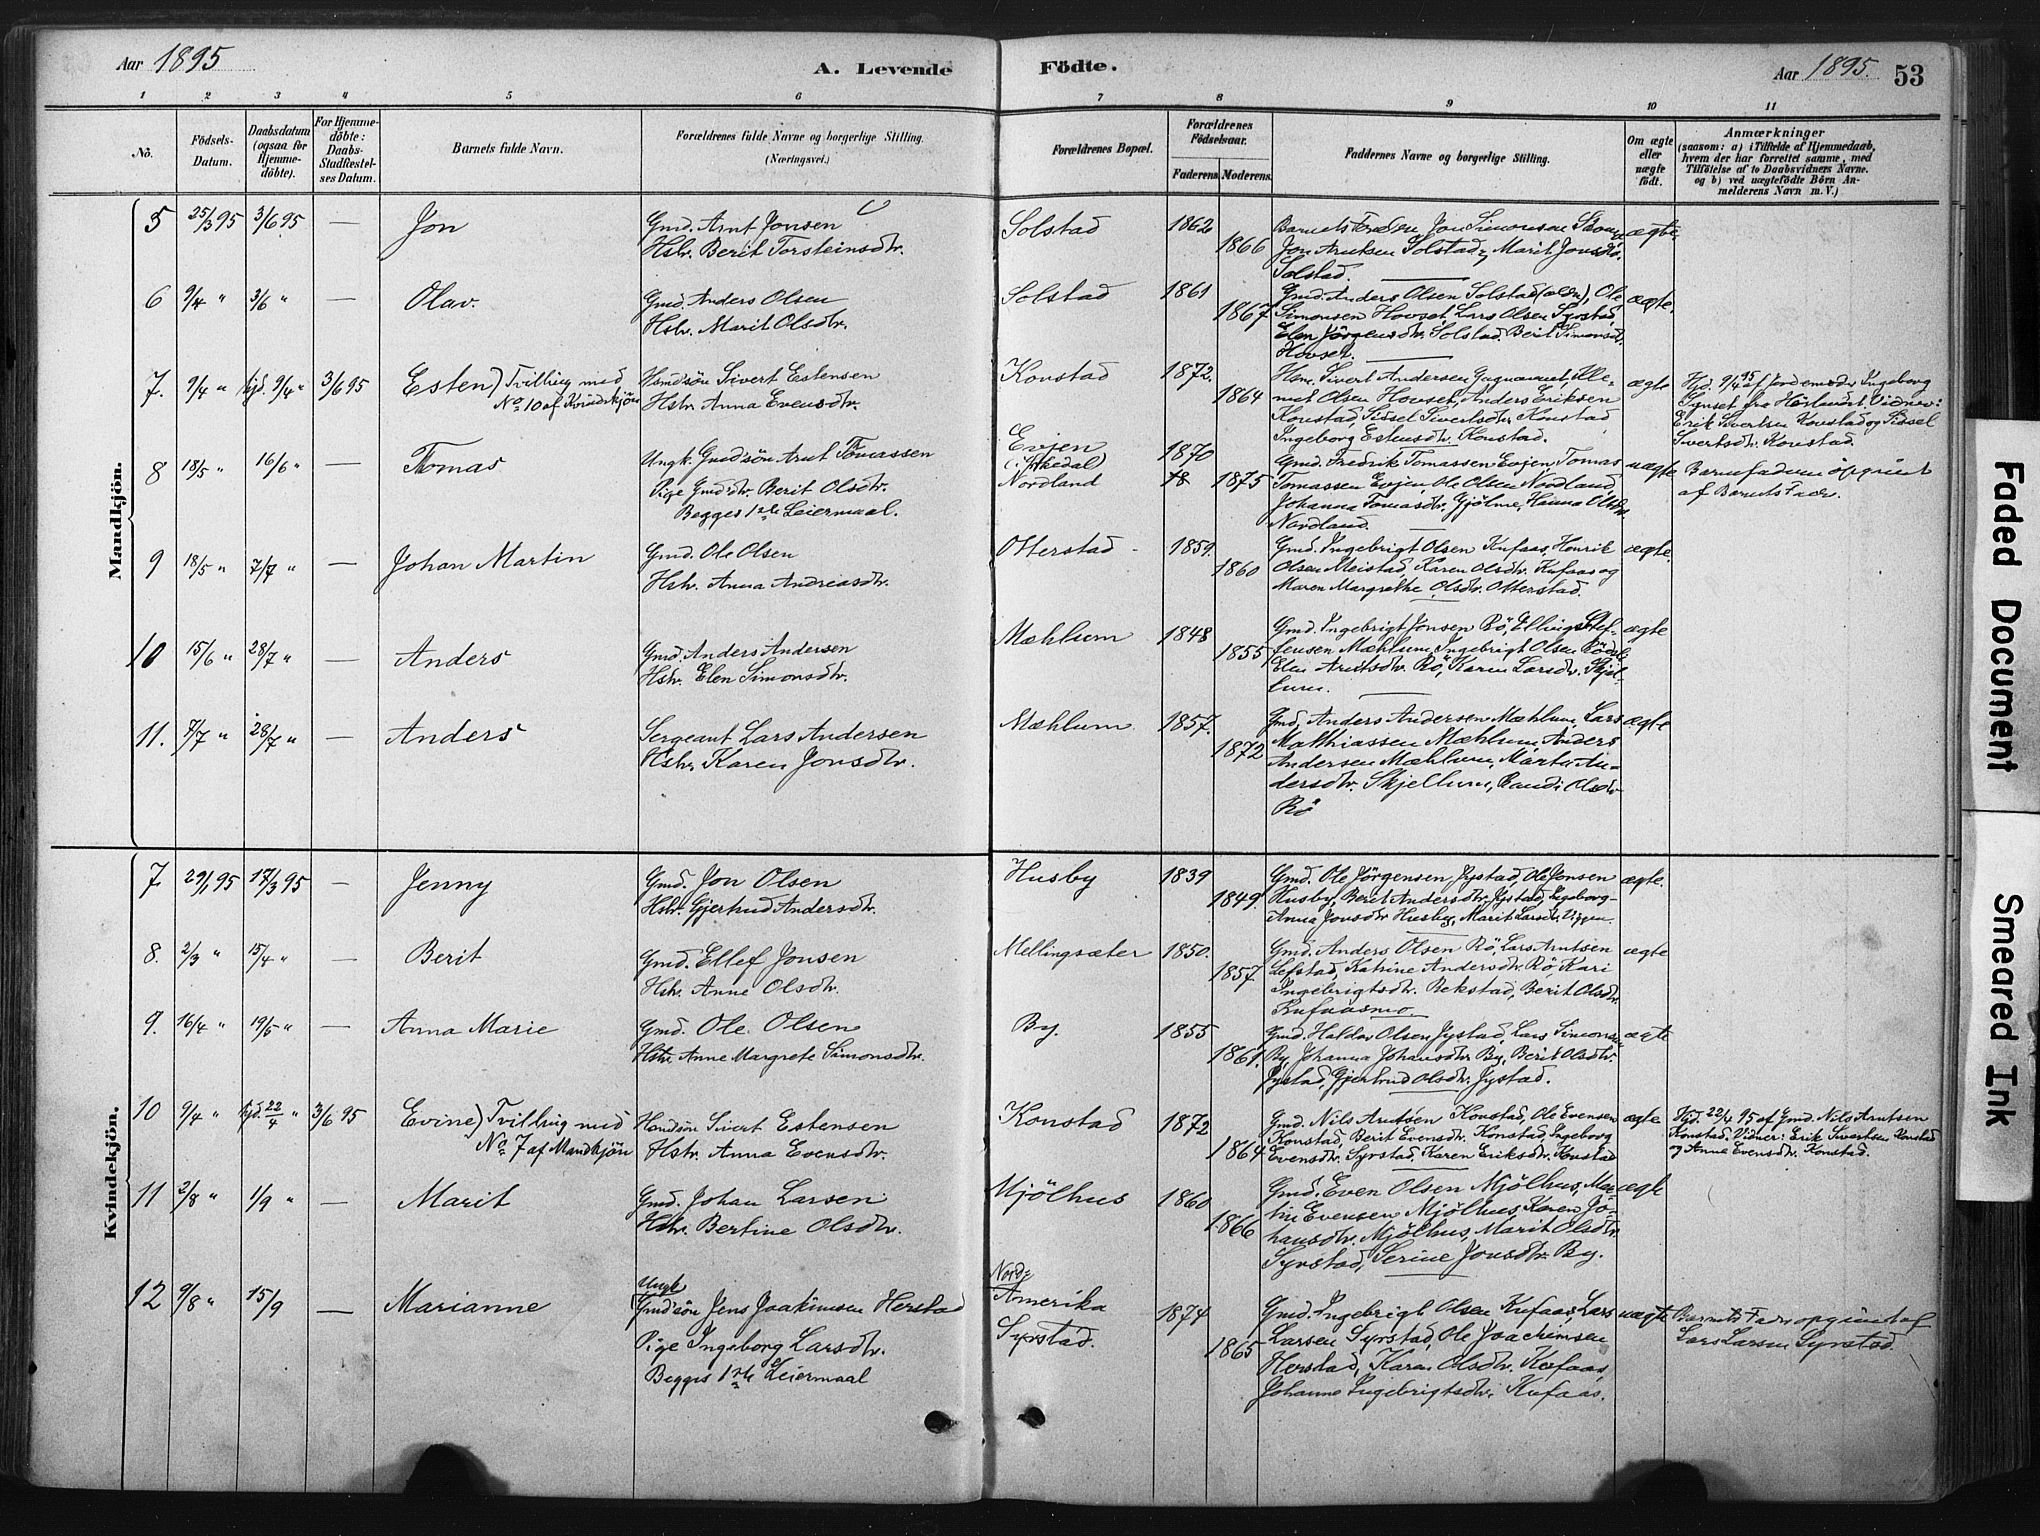 Aar 1895
A. Levende
Födte.
Aar 1895.
53
1 2 3 4 5 6 7 8 9 10 11
No.
Födsels-
Datum.
Daabsdatum
(ogsaa for
Hjemme-
döbte).
For Hjemme-
döbte:
Daabs-
Stadfæstel-
ses Datum.
Barnets fulde Navn.
Forældrenes fulde Navne og borgerlige Stilling.
(Næringsvei.)
Forældrenes Bopæl.
Forældrenes
Födselsaar.
Faderens. Moderens.
Faddernes Navne og borgerlige Stilling.
Om ægte
eller
uægte
födt.
Anmærkninger
(saasom: a) i Tilfælde af Hjemmedaab,
hvem der har forrettet samme, med
Tilföielse af to Daabsvidners Navne.
og b) ved uægtefödte Börn An-
melderens Navn m. V.)
Mandkjön.
5 25/3 95 3/6 95 — Jon
Gmd. Arnt Jonsen
Hstr. Berit Torsteinsdtr.
Solstad 1862 1866
Jon Arntsen Solstad, Marit Jonsdtr.
Solstad.
ægte.
6 9/4 " 3/6 " — Olav.
Gmd. Anders Olsen
Hstr. Marit Olsdtr.
Solstad 1861 1867
Gmd. Anders Olsen Solstad, Ole
Simonsen Hovset, Lars Olsen Syrstad,
Elen Jörgensdtr. Solstad, Berit Simonsdtr.
Hovset.
ægte.
7. 9/4 " hjd. 9/4 " 3/6 95 Esten) Tvilling med
No 10 af Kvindekjön
Hsmdsön Sivert Estensen
Hstr. Anna Evensdtr.
Konstad 1872. 1864
Hsm. Sivert Andersen
Olsen Hovset, Anders Eriksen
Konstad, Sissel Sivertsdtr. Konstad
Ingeborg Estensdtr. Konstad.
ægte
Hjd. 9/4 95 af Jordemoder Ingeborg
Syrset fra Vidner:
Erik Sivertsen Konstad og Sissel
Sivertsdtr. Konstad.
8 18/5 " 16/6 " — Tomas
Ungk. Gmdsön Arnt Tomassen
Pige Gmdsdtr. Berit Olsdtr.
Begges 1ste Leiermaal.
Evjen
(i Orkedal)
Nordland
1870 18 1875
Gmd. Fredrik Tomassen Evjen, Tomas
Tomassen Evjen, Ole Olsen Nordland
Johanna Tomasdtr. Gjölme, Hanna Olsdtr.
Nordland.
uægte
Barnefaderen opgivet
af Barnets Fader.
9 18/5 " 7/7 " — Johan Martin
Gmd. Ole Olsen
Hstr. Anna Andreasdtr.
Otterstad 1859. 1860
Gmd. Ingebrigt Olsen Kufaas, Henrik
Olsen Meistad, Karen Olsdtr. Kufaas og
Maren Margrethe Olsdtr. Otterstad.
ægte.
10 15/6 " 28/7 " — Anders
Gmd. Anders Andersen
Hstr. Elen Simonsdtr.
Mæhlum 1848 1855
Gmd. Ingebrigt Jonsen Rö, Elling Stef-
fensen Mæhlum, Ingebrigt Olsen
Elen Arntsdtr. Rö, Karen Larsdtr. Skjel-
lum.
ægte
11. 7/7 " 28/7 " — Anders
Sergeant Lars Andersen
Hstr. Karen Jonsdtr.
Mæhlum 1857. 1872
Gmd. Anders Andersen Mæhlum, Lars
Matthiassen Mæhlum, Anders
Andersen Mæhlum, Marta An-
dersdtr. Skjellum, Randi Olsdtr
Rö
ægte
Kvindekjön.
7 29/1 95 17/3 95 — Jenny
Gmd. Jon Olsen
Hstr. Gjertrud Andersdtr.
Husby 1839 1849.
Gmd. Ole Jörgensen Jystad, Ole Jonsen
Husby, Berit Andersdtr. Jystad, Ingeborg-
Anna Jonsdtr Husby, Marit Larsdtr. Viggen.
ægte.
8. 2/3 " 15/4 " — Berit
Gmd. Ellef Jonsen
Hstr. Anne Olsdtr.
Mellingsæter 1850. 1857.
Gmd. Anders Olsen Rö, Lars Arntsen
Lefstad, Katrine Andersdtr. Rö, Kari
Ingebrigtsdtr. Rekstad, Berit Olsdtr.
Kufaasmo.
ægte
9. 16/4 " 19/5 " — Anna Marie
Gmd. Ole Olsen
Hstr. Anne Margrete Simonsdtr.
By. 1855 1861.
Gmd. Haldor Olsen Jystad, Lars Simonsen
By, Johanna Johansdtr. By, Berit Olsdtr.
Jystad, Gjertrud Olsdtr. Jystad.
ægte
10 9/4 " hjd. 22/4 " 3/6 95 Evine) Tvilling med
No 7 af Mandkjön
Hsmdsön Sivert Estensen
Hstr. Anna Evensdtr.
Konstad 1872 1864
Gmd. Nils Arntsen Konstad, Ole Evensen
Konstad, Berit Evensdtr. Konstad, Ingeborg
Evensdtr. Syrstad, Karen Eriksdtr. Konstad
ægte
Hjd. 22/4 95 af Gmd. Nils Arntsen
Konstad. Vidner: Erik Sivertsen Konstad
og Anne Evensdtr. Konstad.
11 2/8 " 1/9 " — Marit
Gmd. Johan Larsen
Hstr. Bertine Olsdtr.
Mjölhus 1860 1866
Gmd. Even Olsen Mjölhus, Mar-
tin Evensen Mjölhus, Karen Jo-
hansdtr. Mjölhus, Marit Olsdtr.
Syrstad, Serine Jonsdtr. By.
ægte
12 9/8 " 15/9 — Marianne
Ungk
Gmdsön Jens Joakimsen Herstad
Pige Ingeborg Larsdtr.
Begges 1ste Leiermaal
Nord-
Amerika
Syrstad.
1874 1865
Gmd. Ingebrigt Olsen Kufaas, Lars
Larsen Syrstad, Ole Joachimsen
Herstad, Karen Olsdtr. Kufaas
Johanna Ingebrigtsdtr. Kufaas.
uægte
Barnets Fader opgivet af
Lars Larsen Syrstad.
Faded Document
Smeared Ink